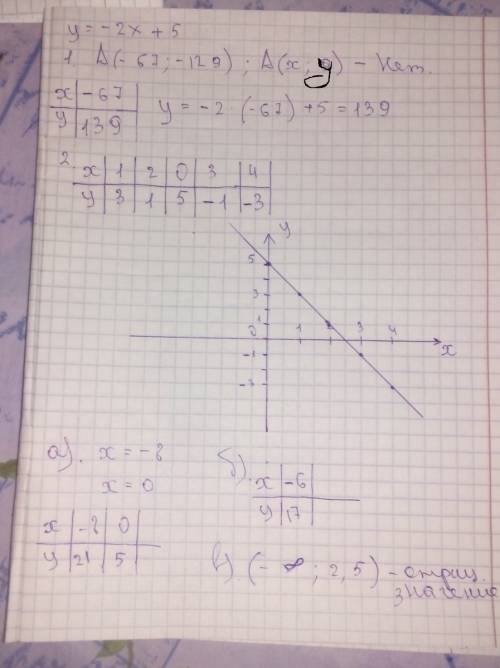 y = -2x + 5
1. A(-67; -129) ; A(x, y) - Нет.
x | -67
y | 139
y = -2 · (-67) + 5 = 139
2.
x | 1 | 2 | 0 | 3 | 4
y | 3 | 1 | 5 | -1 | -3
y
5
3
1
0 1 3 4 x
-1
-3
а). x = -8
x = 0
x | -8 | 0
y | 21 | 5
б).
x | -6
y | 17
в). (-∞; 2,5) - отриц.
значение